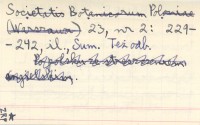 Societatis Botanicorum Poloniae
(Warszawa) 23, nr 2: 229-
-242, il., Sum. Też odb.